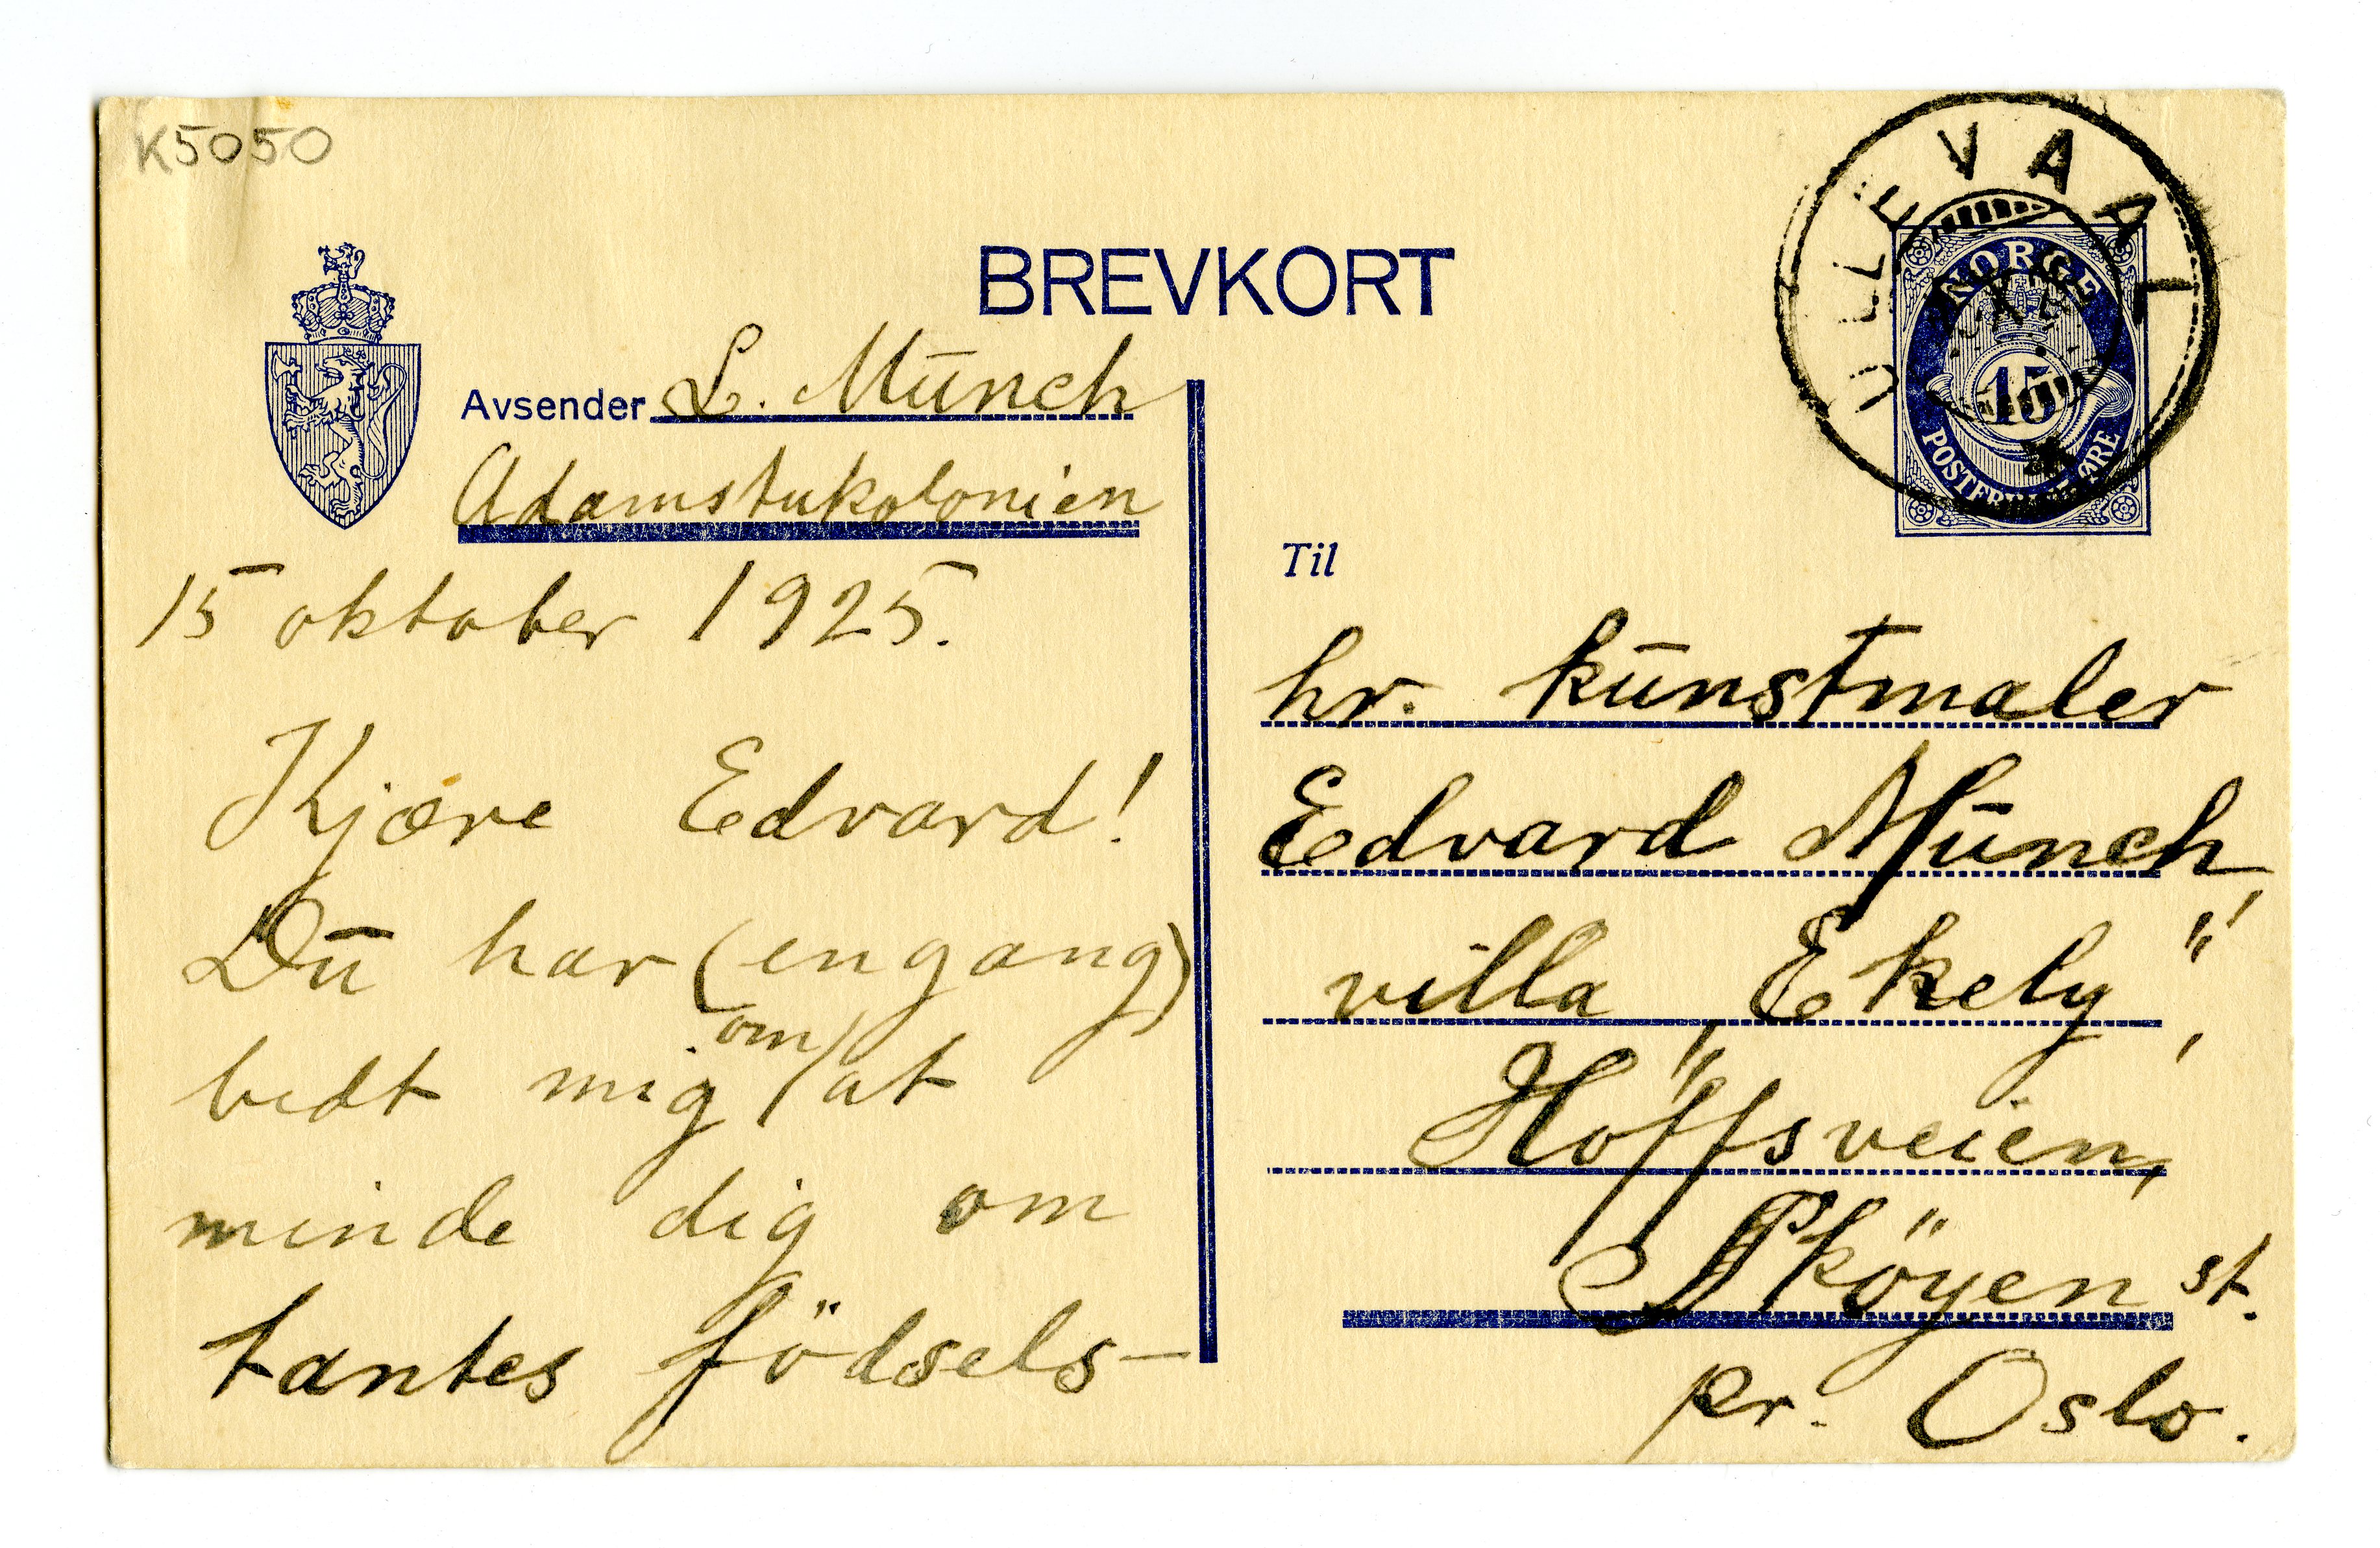 K5050
BREVKORT
ULLEVAAL
NORGE
15
POSTFRIM ØRE
Avsender L. Mūnch
Adamstukolonien
15 oktober 1925.
Kjære Edvard!
Dū har (engang)
bedt mig om/at
minde dig om
tantes födsels-
Til
hr. kūnstmaler
Edvard Mūnch,
villa „Ekely",
Hoffsveien,
Sköyen st.
pr. Oslo.